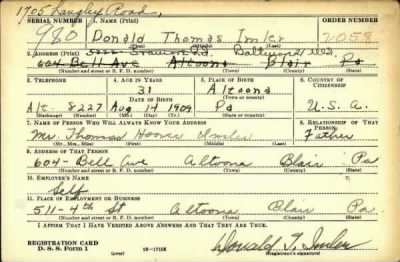 1705 Langley Road,
SERIAL NUMBER 1. NAME (Print) ORDER NUMBER
980 Donald Thomas Imler 2058
Baltimore Md.
2. ADDRESS (Print)
604 Bell Ave Altoona Blair Pa
(Number and street or R. F. D. number) (Town) (County) (State)
3. TELEPHONE 4. AGE IN YEARS 5. PLACE OF BIRTH 6. COUNTRY OF CITIZENSHIP
31 Altoona
DATE OF BIRTH (Town or county)
Alt. 8227 Aug 14 1909 Pa U. S. A.
(Exchange) (Number) (Mo.) (Day) (Yr.) (State or country)
7. NAME OF PERSON WHO WILL ALWAYS KNOW YOUR ADDRESS 8. RELATIONSHIP OF THAT PERSON
Mr. Thomas Hoover Imler Father
(Mr., Mrs., Miss) (First) (Middle) (Last)
9. ADDRESS OF THAT PERSON
604- Bell Ave Altoona Blair Pa
(Number and street or R. F. D. number) (Town) (County) (State)
10. EMPLOYER'S NAME
Self
11. PLACE OF EMPLOYMENT OR BUSINESS
511-4th St Altoona Blair Pa
(Number and street or R. F. D. number) (Town) (County) (State)
I AFFIRM THAT I HAVE VERIFIED ABOVE ANSWERS AND THAT THEY ARE TRUE.
REGISTRATION CARD
D. S. S. Form 1 (over) 16-17105 Donald T. Imler
(Registrant's signature)